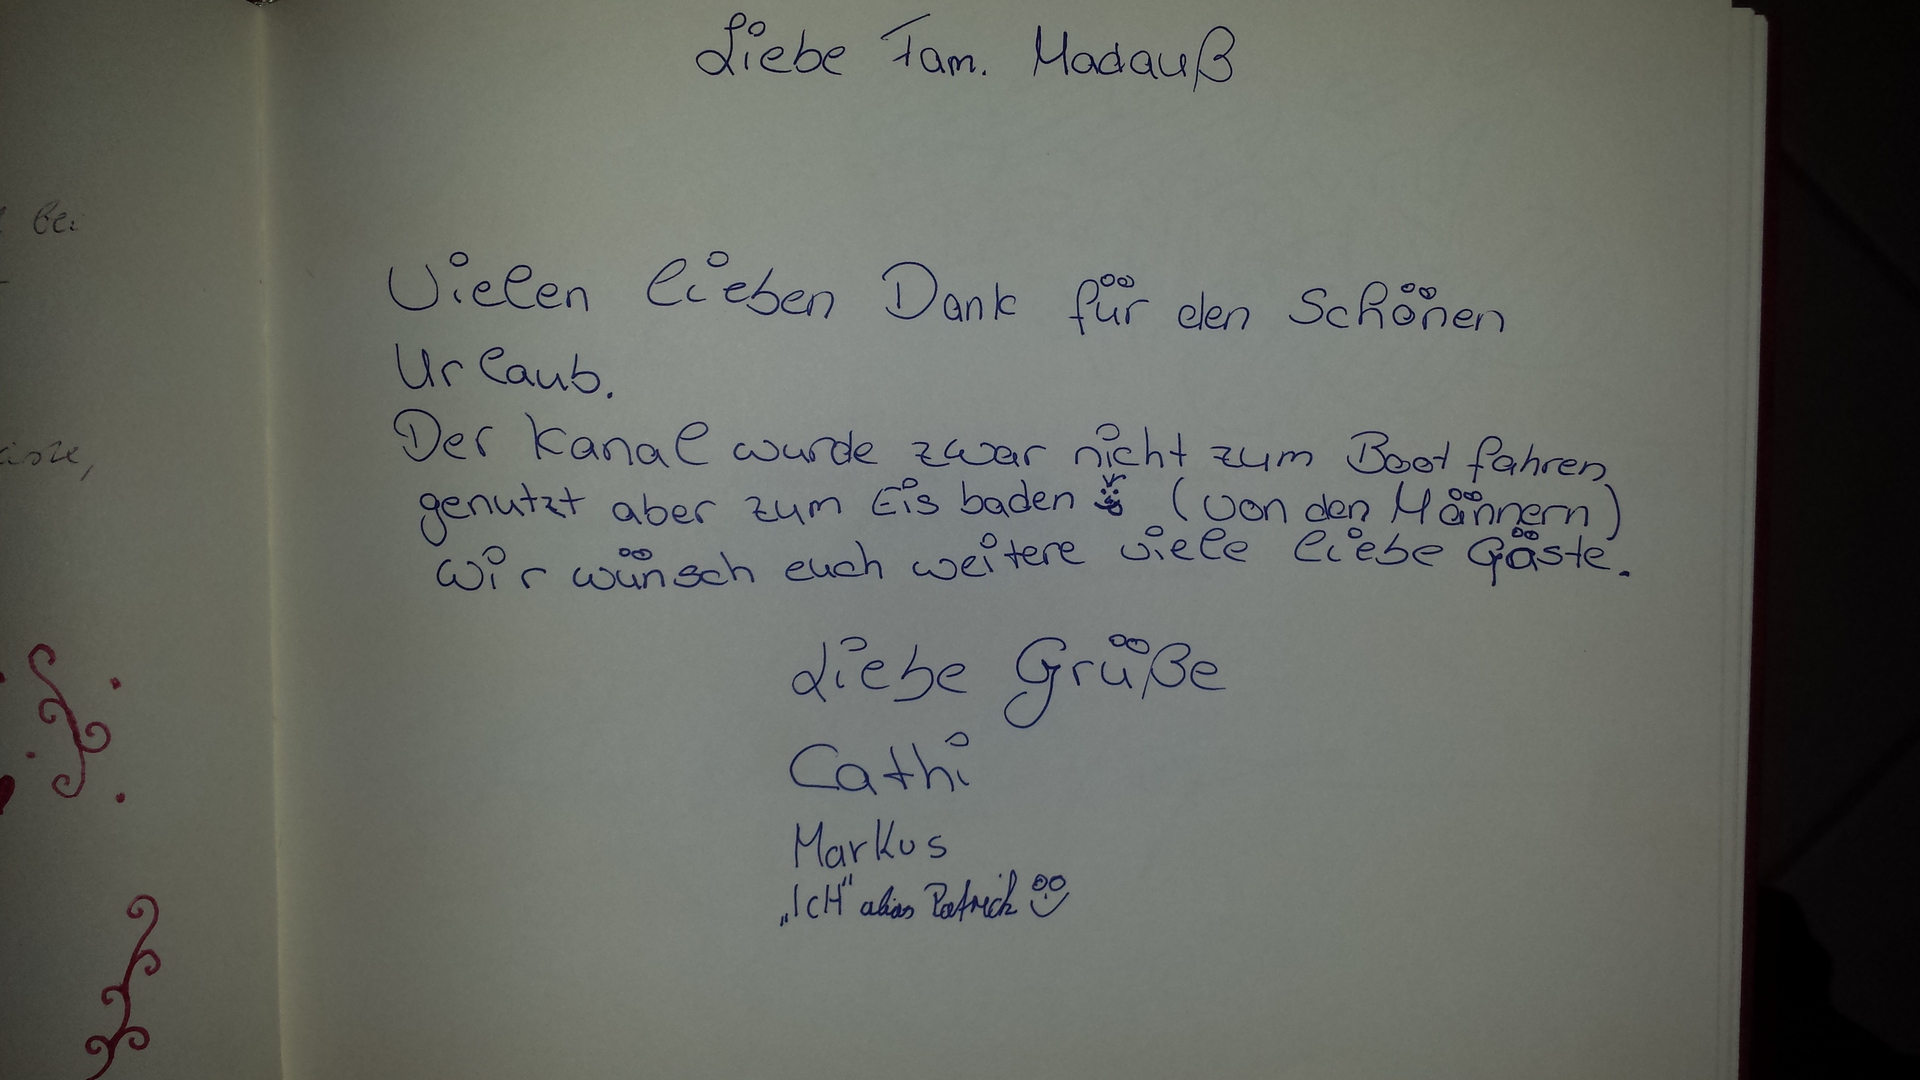 bei
Liebe Fam. Madauß
Vielen lieben Dank für den Schönen
Urlaub.
Der Kanal wurde zwar nicht zum Boot fahren
genutzt aber zum Eis baden (von den Männern)
wir wünsch euch weitere viele liebe Gäste.
Liebe Grüße
Cathi
Markus
„IcH" alias Patrick